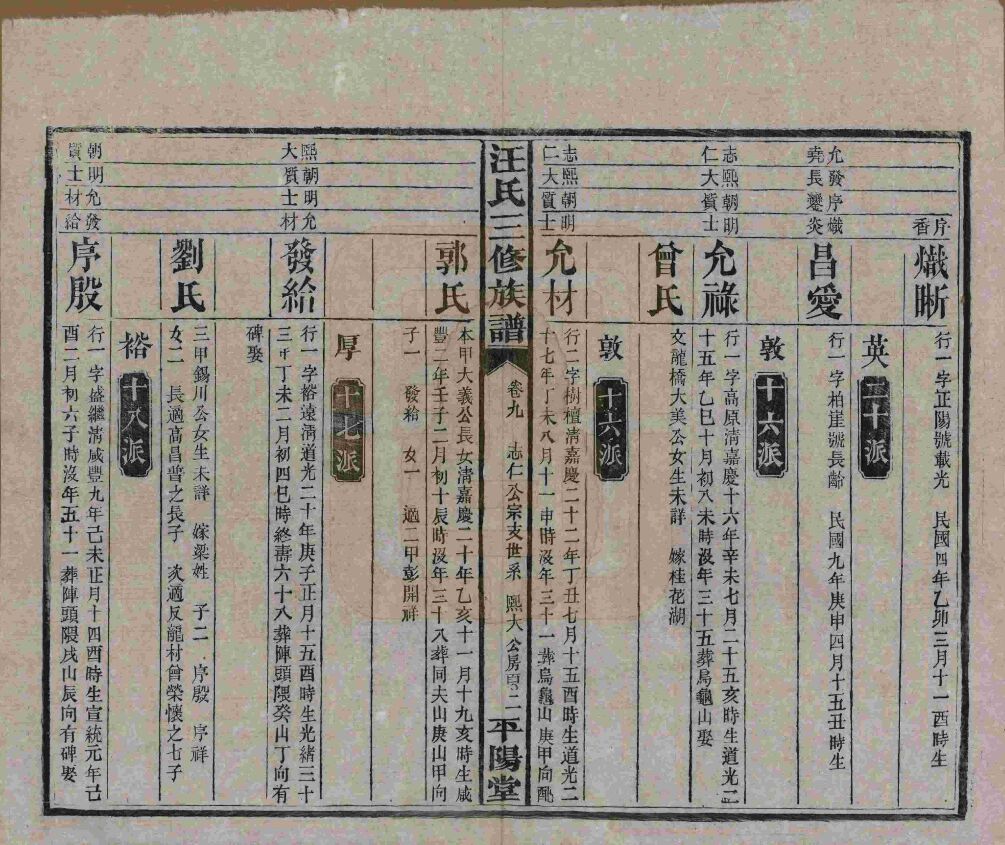 序熾
香
熾晰
行一字正陽號載光 民國四年乙卯三月十一酉時生
英 二十派
允發序熾
堯長夔炎
昌愛
行一字柏崖號長齡 民國九年庚申四月十五丑時生
敦 十六派
志熙朝明
仁大質士
允祿
行一字高原淸嘉慶十六年辛未七月二十五亥時生道光二
十五年乙巳十月初八未時沒年三十五葬烏龜山娶
曾氏
文龍橋大美公女生未詳 嫁桂花湖
敦 十六派
志熙朝明
仁大質士
允材
行二字樹檀淸嘉慶二十二年丁丑七月十五酉時生道光二
十七年丁未八月十一申時沒年三十一葬烏龜山庚甲向配
汪氏三修族譜 卷九 志仁公宗支世系 熙大公房 二 平陽堂
郭氏
本甲大義公長女淸嘉慶二十年乙亥十一月十九亥時生咸
豐二年壬子二月初十辰時沒年三十八葬同夫山庚山甲向
子一 發給 女一 適二甲彭開祥
厚 十七派
熙朝明允
大質士材
發給
行一字裕遠淸道光二十年庚子正月十五酉時生光緒三十
三年丁未二月初四巳時終壽六十八葬陣頭隈癸山丁向有
碑娶
劉氏
三甲錫川公女生未詳 嫁梁姓 子二 序殷 序祥
女二 長適高昌普之長子 次適反龍村曾榮懷之七子
裕 十八派
朝明允發
質士材給
序殷
行一字盛繼淸咸豐九年己未正月十四酉時生宣統元年己
酉二月初六子時沒年五十一葬陣頭隈戌山辰向有碑娶